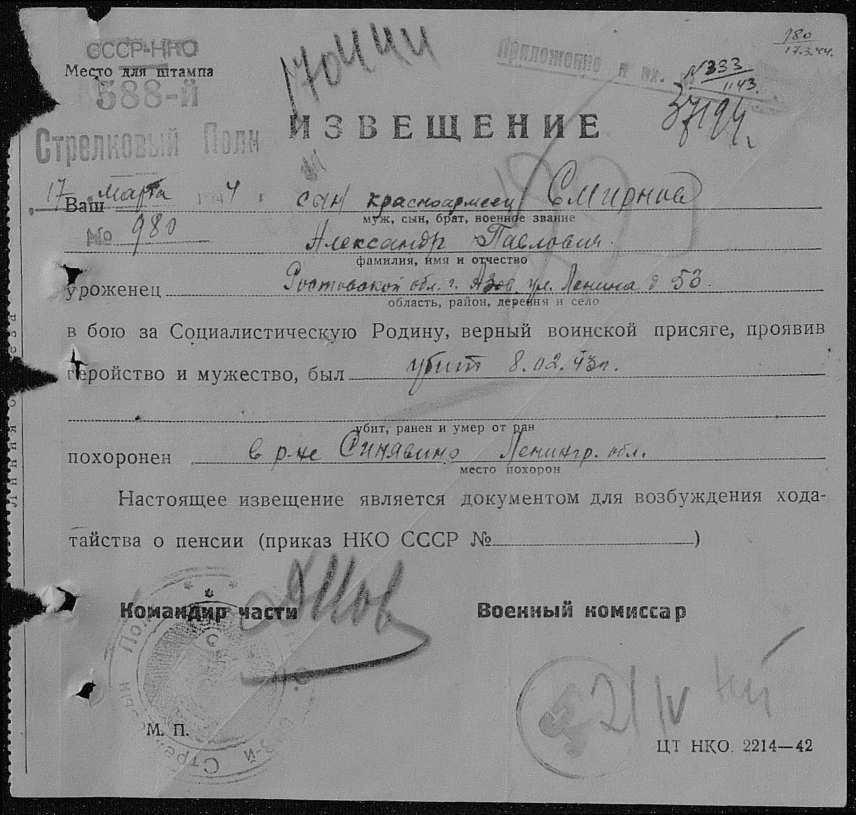 СССР-НКО
Место для штампа
588-й
Стрелковый Полк
17 марта 1944 г.
№ 980
980
17.3.44.
Приложение к вх.
№333
1143.
ИЗВЕЩЕНИЕ
Ваш сын красноармеец Смирнов
муж, сын, брат, военное звание
Александр Павлович
фамилия, имя и отчество
уроженец Ростовской обл. г. Азов ул. Ленина д 53.
область, район, деревня и село
в бою за Социалистическую Родину, верный воинской присяге, проявив
геройство и мужество, был убит 8.02.43г.
убит, ранен и умер от ран
похоронен в р-не Синявино Ленингр. обл.
место похорон
Настоящее извещение является документом для возбуждения хода-
тайства о пенсии (приказ НКО СССР № )
Командир части Военный комиссар
М. П.
21/IV
ЦТ НКО. 2214—42